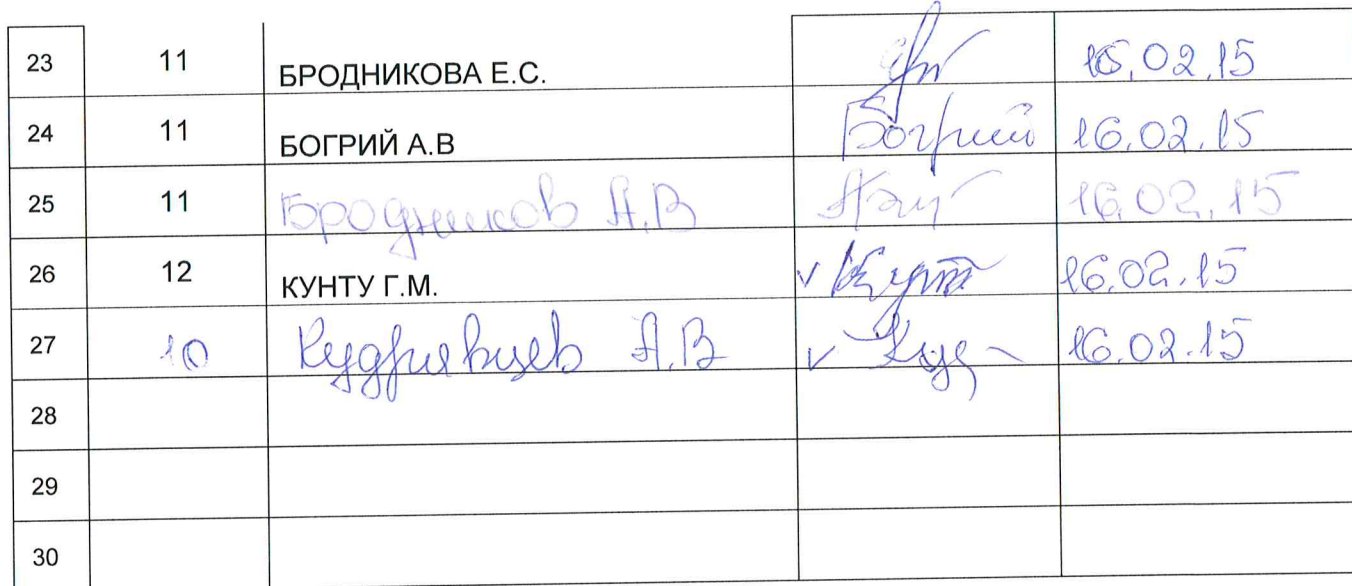 23 11 БРОДНИКОВА Е.С. 16.02.15
24 11 БОГРИЙ А.В Богрий 16.02.15
25 11 Бродников А.В 16.02.15
26 12 КУНТУ Г.М. v Кунт 16.02.15
27 10 Кудрявцев А.В v Куд 16.02.15
28
29
30